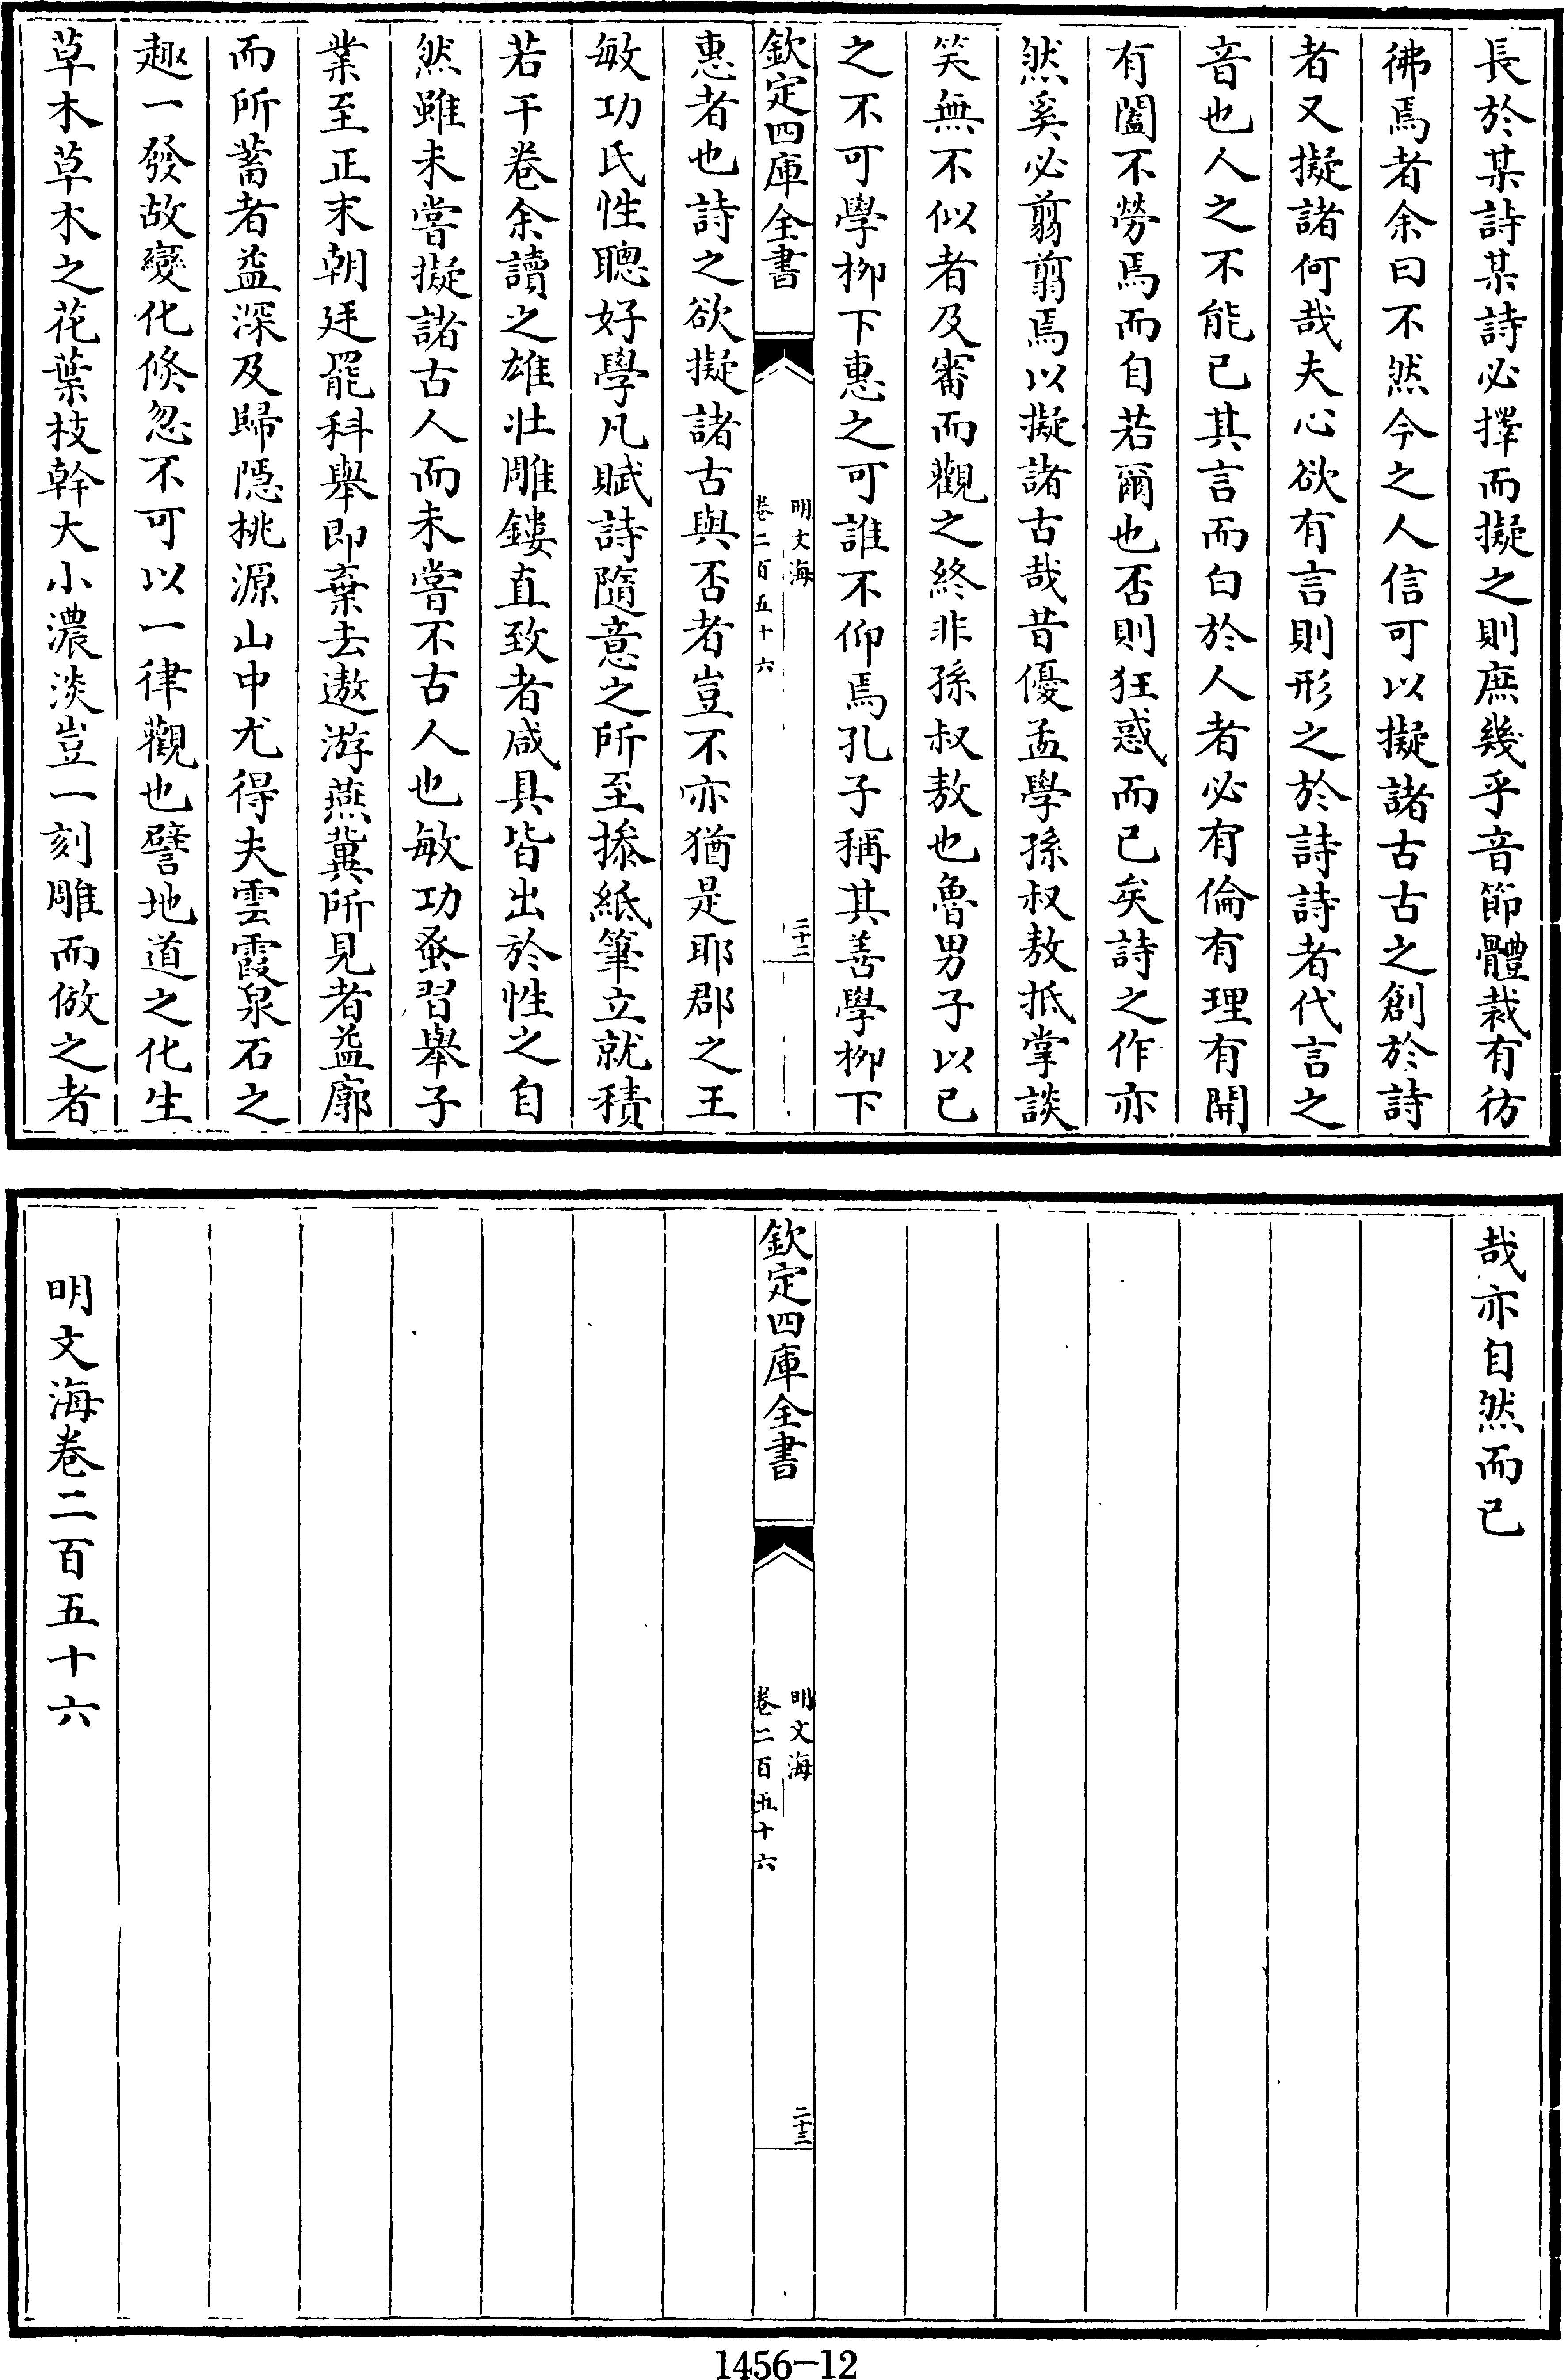 長於某詩某詩必擇而擬之則庶幾乎音節體裁有彷
彿焉者余曰不然今之人信可以擬諸古古之創於詩
者又擬諸何哉夫心欲有言則形之於詩詩者代言之
音也人之不能已其言而白於人者必有倫有理有開
有闔不勞焉而自若爾也否則狂惑而已矣詩之作亦
然奚必翦翦焉以擬諸古哉昔優孟學孫叔敖抵掌談
笑無不似者及審而觀之終非孫叔敖也魯男子以已
之不可學栁下惠之可誰不仰焉孔子稱其善學栁下
欽定四庫全書
明文海
卷二百五十六
二十二
惠者也詩之欲擬諸古與否者豈不亦猶是耶郡之王
敏功氏性聰好學凡賦詩隨意之所至㨮紙筆立就積
若干卷余讀之雄壯雕鏤直致者咸具皆出於性之自
然雖未嘗擬諸古人而未嘗不古人也敏功蚤習舉子
業至正末朝廷罷科舉即棄去遨游燕冀所見者益廓
而所蓄者益深及歸隱桃源山中尤得夫雲霞泉石之
趣一發故變化倐忽不可以一律觀也譬地道之化生
草木草木之花葉枝幹大小濃淡豈一刻雕而倣之者
哉亦自然而已
欽定四庫全書
明文海
卷二百五十六
二十三
明文海卷二百五十六
1456-12